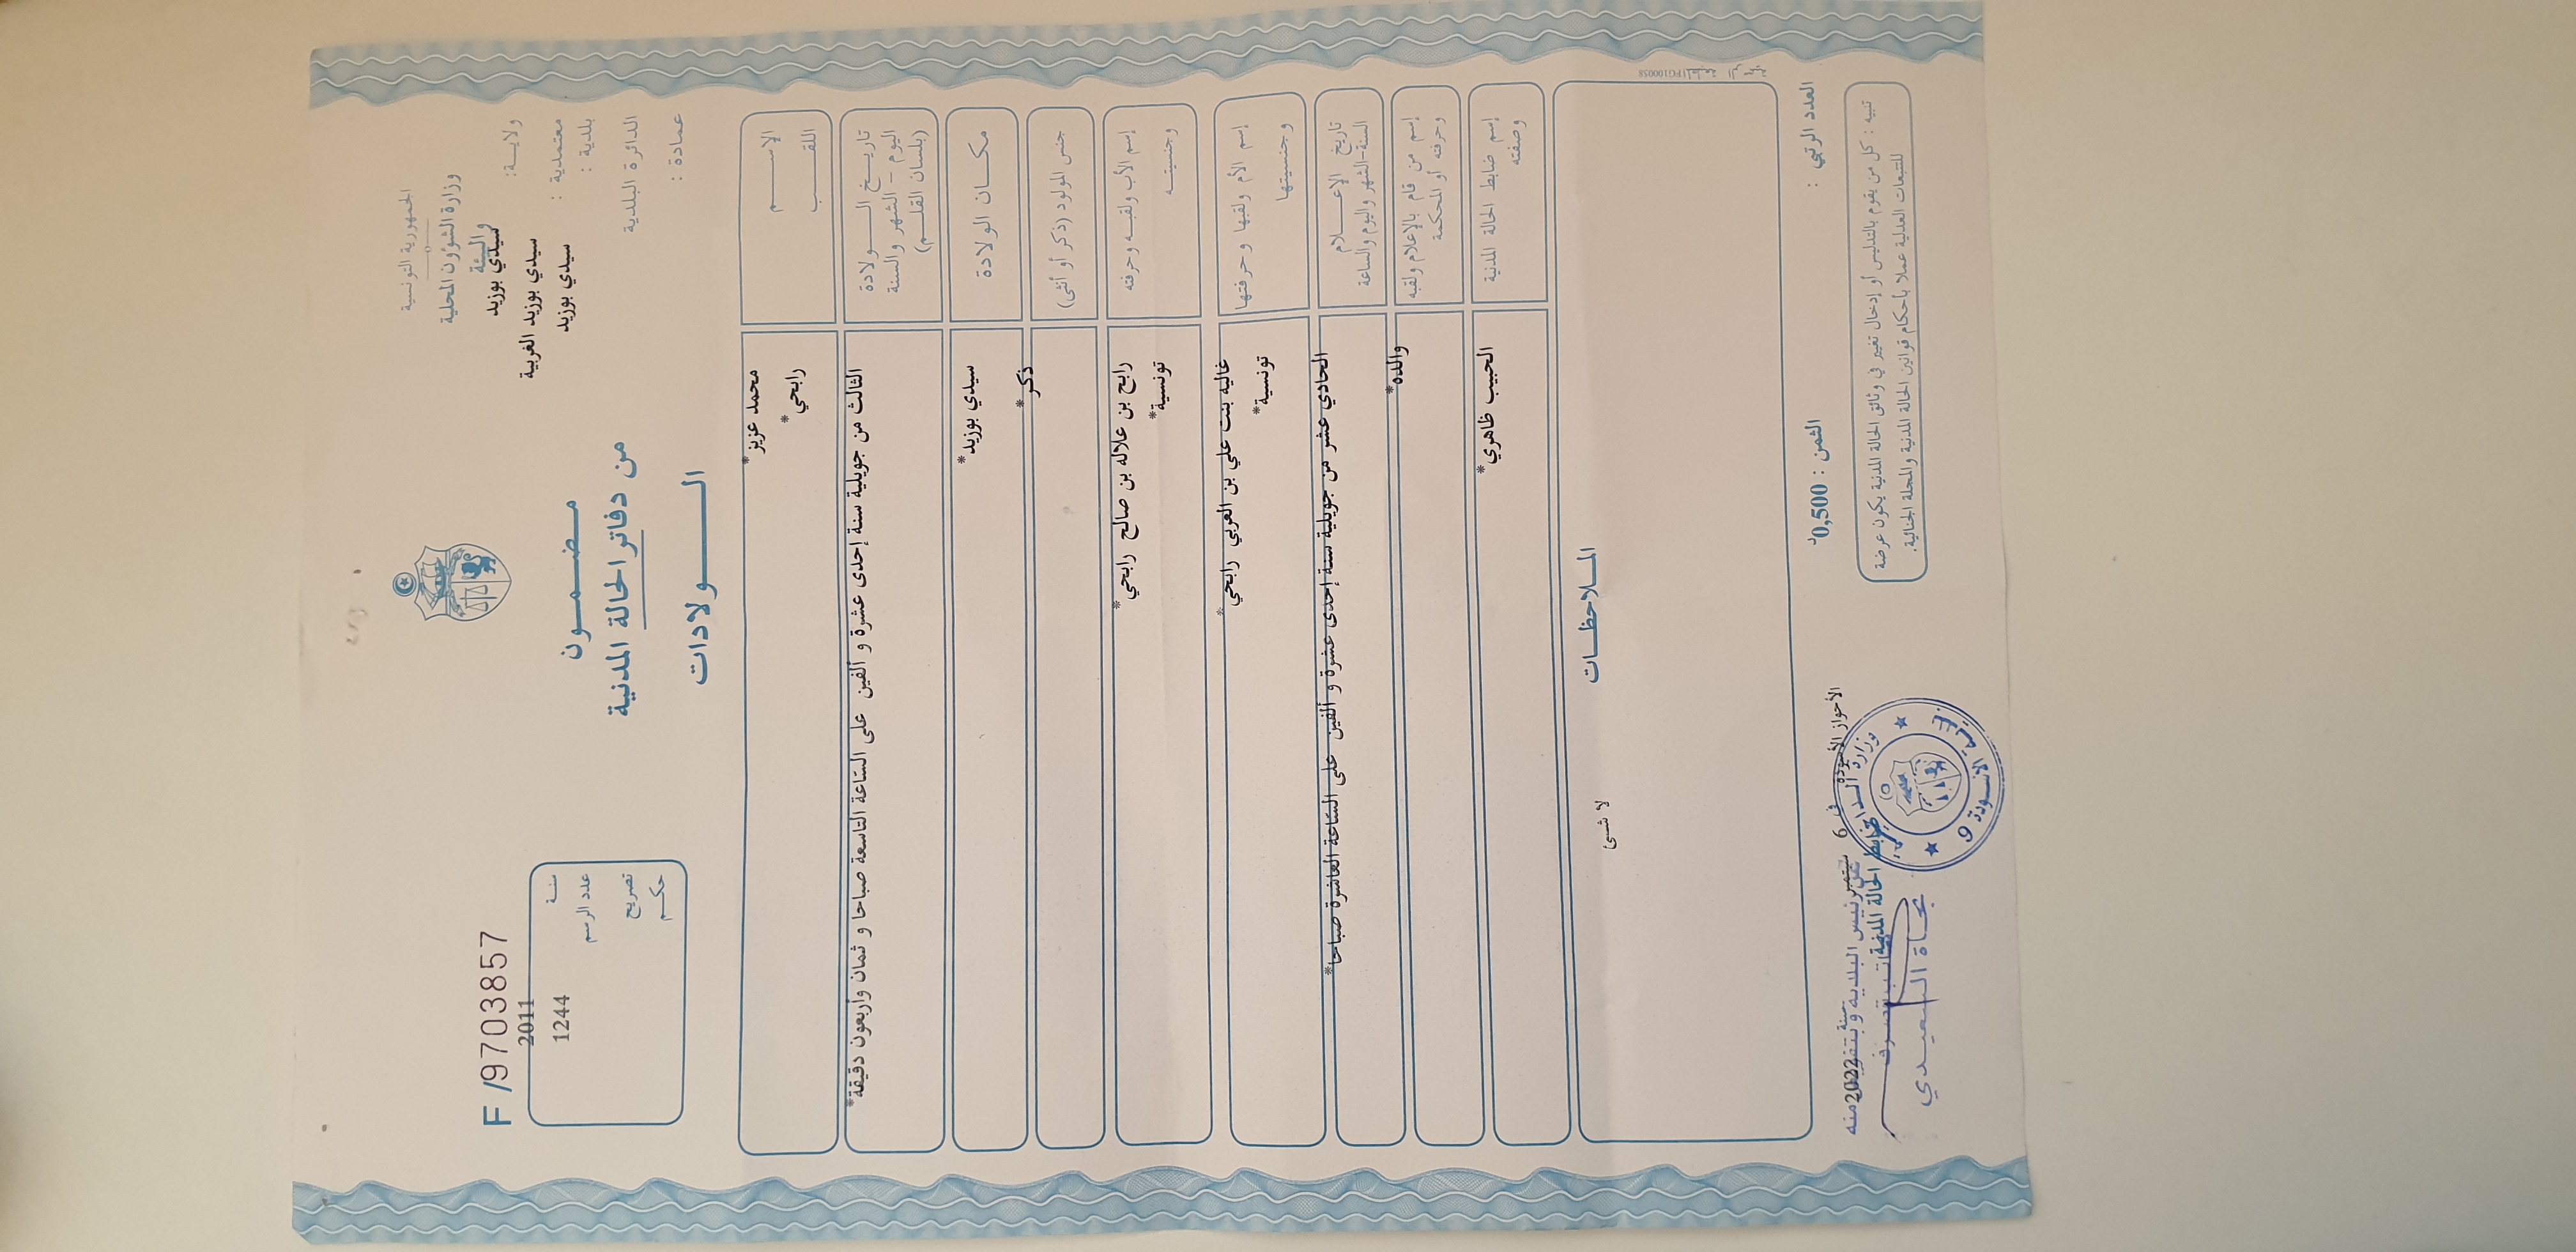 الجمهورية التونسية
وزارة الشؤون المحلية
والبيئة
ولاية: سيدي بوزيد
معتمدية : سيدي بوزيد الغربية
بلدية : سيدي بوزيد
الدائرة البلدية
عمادة :
مضمون
من دفاتر الحالة المدنية
الولادات
F /9703857
سنة 2011
عدد الرسم 1244
تصريح
حكم
الإسم محمد عزيز*
اللقب رابحي*
تاريخ الولادة
اليوم - الشهر والسنة
(بلسان القلم)
الثالث من جويلية سنة إحدى عشرة و ألفين على الساعة التاسعة صباحا و ثمان وأربعون دقيقة*
مكان الولادة سيدي بوزيد*
جنس المولود (ذكر أو أنثى) ذكر*
إسم الأب ولقبه وحرفته رابح بن علاله بن صالح رابحي*
وجنسيته تونسية*
إسم الأم ولقبها وحرفتها غاليه بنت علي بن العربي رابحي*
وجنسيتها تونسية*
تاريخ الإعلام
السنة-الشهر واليوم والساعة
الحادي عشر من جويلية سنة إحدى عشرة و ألفين على الساعة العاشرة صباحا*
إسم من قام بالإعلام ولقبه والده*
وحرفته أو المحكمة
إسم ضابط الحالة المدنية الحبيب ظاهري*
وصفته
الملاحظات
لا شىء
العدد الرتبي :
الثمن : 0,500د
تنبيه : كل من يقوم بالتدليس أو إدخال تغيير في وثائق الحالة المدنية يكون عرضة
للتتبعات العدلية عملا بأحكام قوانين الحالة المدنية والمجلة الجنائية.
الأحواز الأسودة في 6 سبتمبر سنة 2022
عن رئيس البلدية وبتفويض منه
ضابط الحالة المدنية